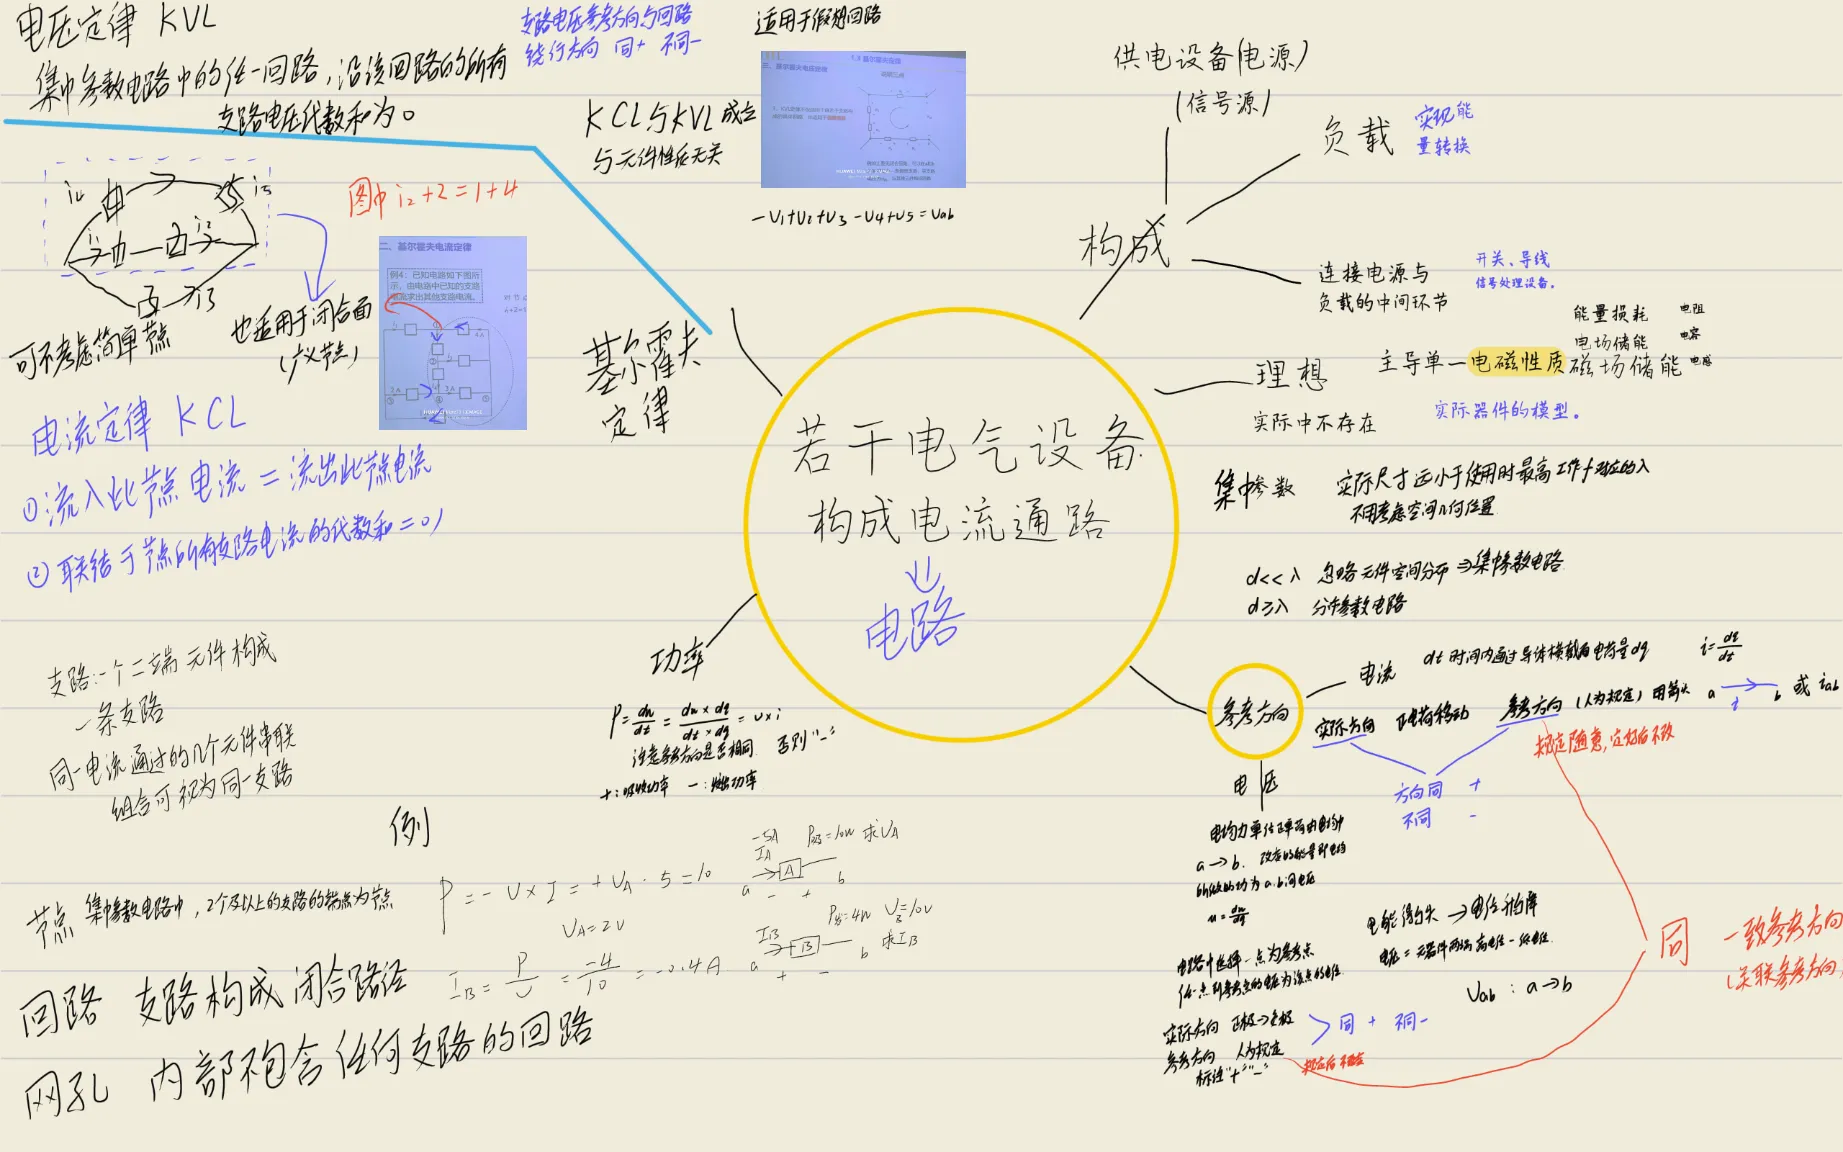 电压定律 KVL
集中参数电路中的任一回路，沿该回路的所有
支路电压代数和为0
支路电压参考方向与回路
绕行方向 同+ 不同-
适用于假想回路
KCL与KVL成立
与元件性质无关
-U1+U2+U3-U4+U5=Uab
图中 i2+2=1+4
二、基尔霍夫电流定律
例4：已知电路如下图所
示，由电路中已知的支路
电流求出其他支路电流。
可不考虑简单节点
也适用于闭合面
(广义节点)
基尔霍夫
定律
电流定律 KCL
①流入此节点电流=流出此节点电流
②联结于节点所有支路电流的代数和=0)
支路:一个二端元件构成
一条支路
同一电流通过的几个元件串联
组合可视为同一支路
节点 集中参数电路中，2个及以上的支路的端点为节点
回路 支路构成闭合路径
网孔 内部不包含任何支路的回路
若干电气设备
构成电流通路
电路
构成
供电设备(电源)
(信号源)
负载
实现能
量转换
连接电源与
负载的中间环节
开关、导线
信号处理设备。
理想
实际中不存在
主导单一电磁性质
能量损耗 电阻
电场储能 电容
磁场储能 电感
实际器件的模型。
集中参数 实际尺寸远小于使用时最高工作f对应的λ
不用考虑空间几何位置
d<<λ 忽略元件空间分布⇒集中参数电路
d≥λ 分布参数电路
功率
P=dw/dt=dw×dq/dt×dq=u×i
注意参考方向是否相同 否则"-"
+:吸收功率 -:发出功率
例
P=-U×I=+UA·5=10
UA=2V
-5A
IA
PA发=10W 求UA
a A b
- +
IB=P/U=-4/10=-0.4A
IB
PB发=4W UB=10V
求IB
a B b
+ -
参考方向
电流 dt时间内通过导体横截面电荷量dq i=dq/dt
实际方向 正电荷移动
参考方向 (人为规定) 用箭头 a i b 或 iab
规定随意，定好后不改
方向同 +
不同 -
电压
电场力单位正电荷由电场中
a→b.
所做的功为a.b间电压
u=dw/dq
电能得失→电位升降
电压=元器件两端高电位-低电位
Uab : a→b
电路中选择一点为参考点
任一点到参考点的电压为该点的电位
实际方向 正极→负极
参考方向 人为规定
标注"+""-"
同+ 不同-
规定后不改
同
一致参考方向
(关联参考方向)